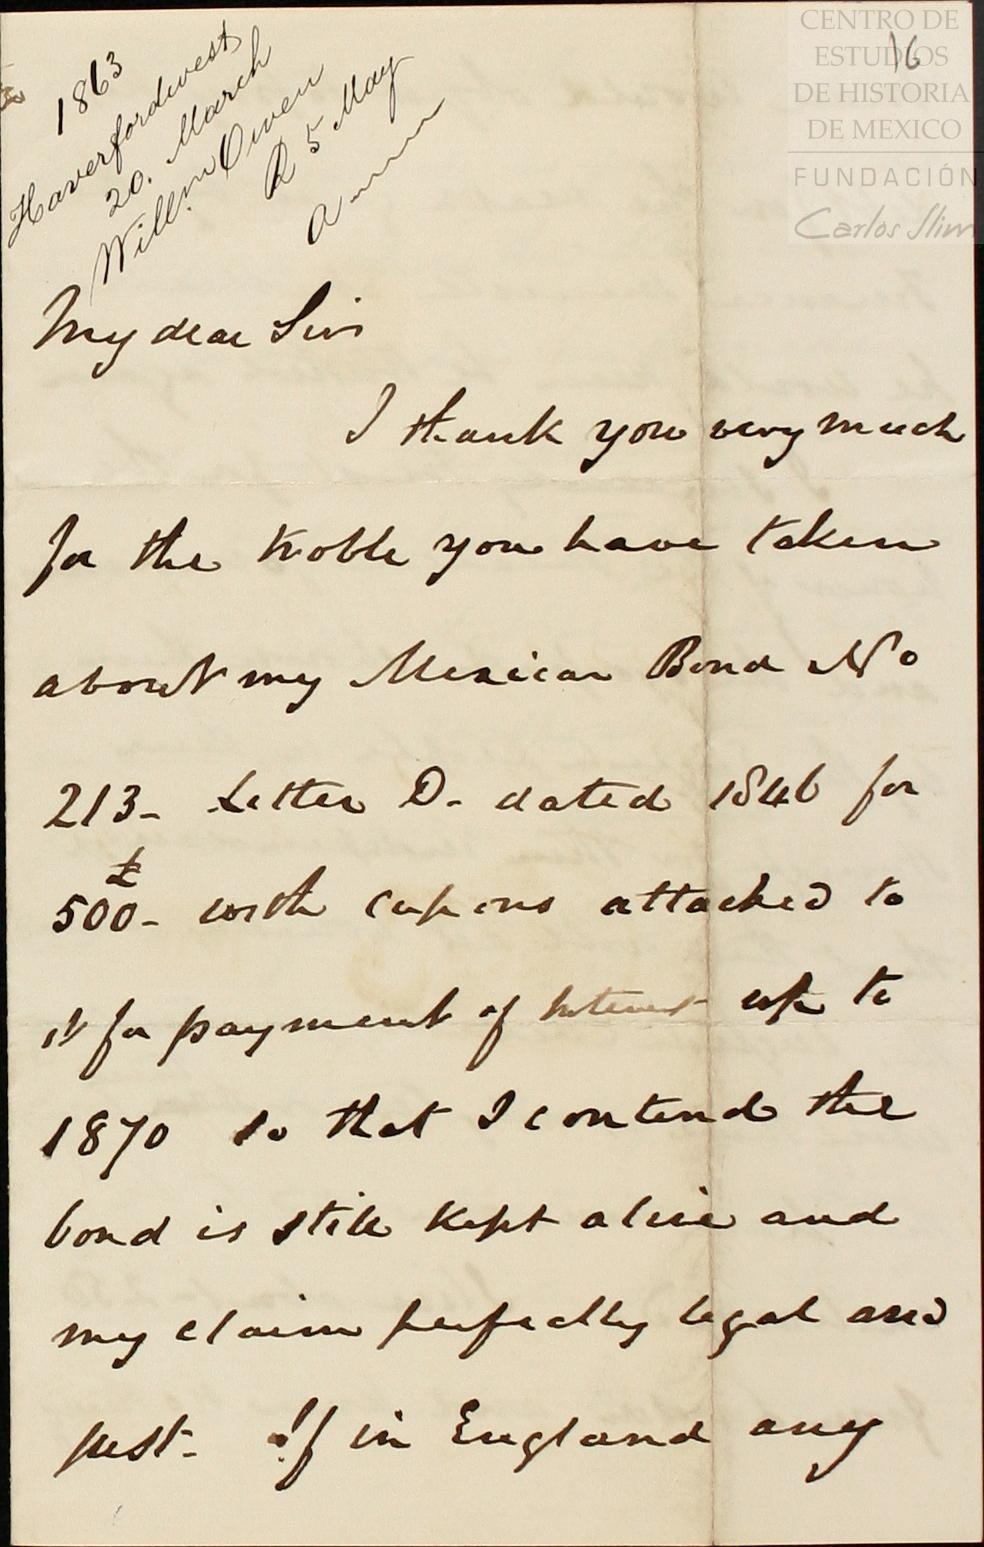 1863
Haverfordwest
20. March
Willm Owen
R 5 May
16
CENTRO DE
ESTUDIOS
DE HISTORIA
DE MEXICO
FUNDACIÓN
Carlos Slim
My dear Sir
I thank you very much
for the troble you have taken
about my Mexican Bond No
213- Letter D- dated 1846 for
£
500- with cupons attached to
it for payment of Interest up to
1870 so that I contend the
bond is still kept alive and
my claim perfectly legal and
just- If in England any